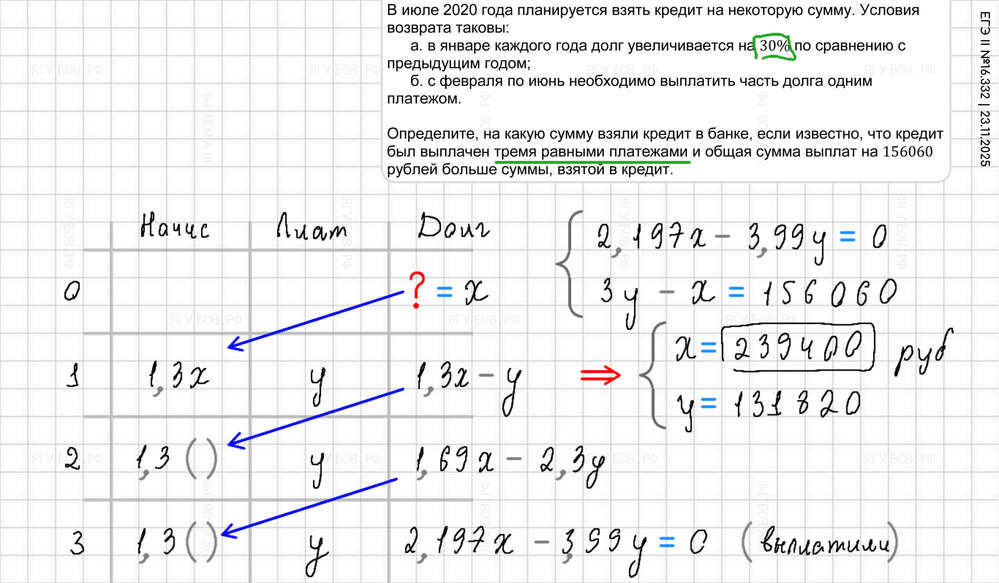 В июле 2020 года планируется взять кредит на некоторую сумму. Условия
возврата таковы:
а. в январе каждого года долг увеличивается на 30% по сравнению с
предыдущим годом;
б. с февраля по июнь необходимо выплатить часть долга одним
платежом.
Определите, на какую сумму взяли кредит в банке, если известно, что кредит
был выплачен тремя равными платежами и общая сумма выплат на 156060
рублей больше суммы, взятой в кредит.
ЕГЭ II №16.332 | 23.11.2025
Начис Плат Долг
0 ? = x
1 1,3x y 1,3x - y
2 1,3 ( ) y 1,69x - 2,3y
3 1,3 ( ) y 2,197x - 3,99y = 0 (выплатили)
2,197x - 3,99y = 0
3y - x = 156060
⇒ x = 239400 руб
y = 131820
ЯГУБОВ.РФ